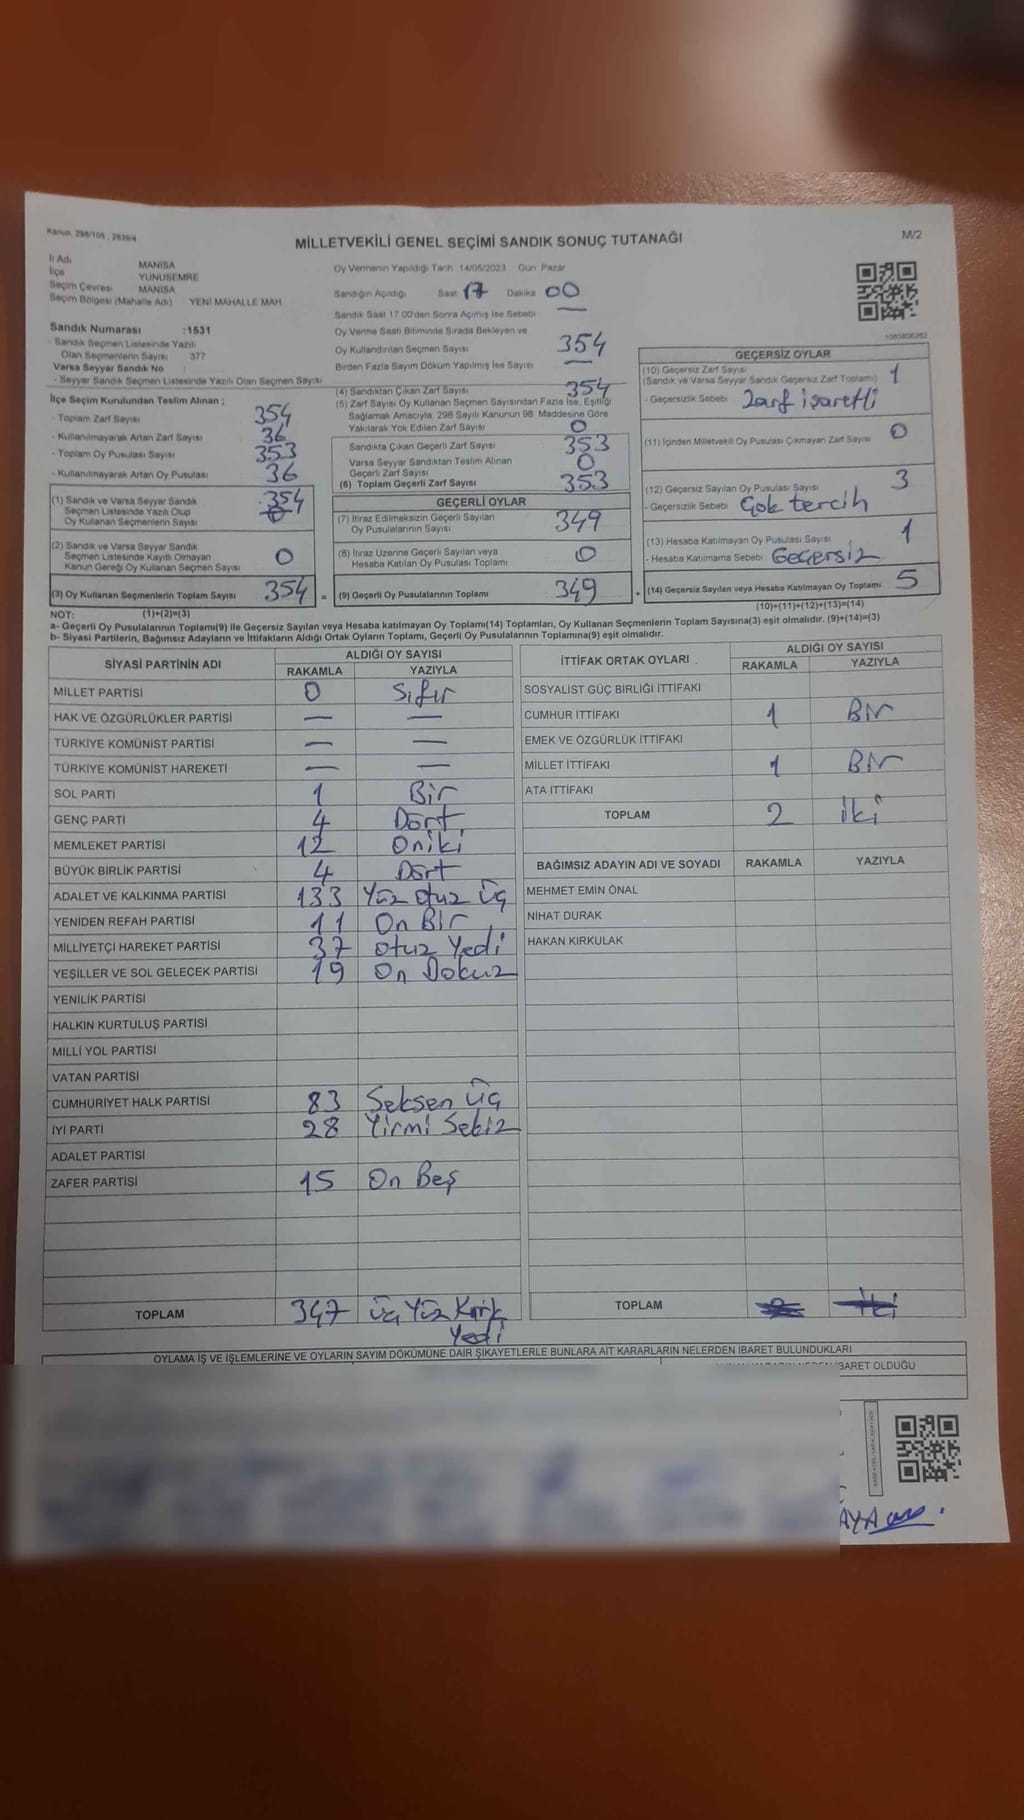 Kanun: 298/105 , 2839/4
MİLLETVEKİLİ GENEL SEÇİMİ SANDIK SONUÇ TUTANAĞI
M/2
İl Adı MANİSA
İlçe YUNUSEMRE
Seçim Çevresi MANİSA
Seçim Bölgesi (Mahalle Adı) YENİ MAHALLE MAH.
Oy Vermenin Yapıldığı Tarih 14/05/2023 Gün: Pazar
Sandığın Açıldığı Saat 17 Dakika 00
Sandık Saat 17.00'den Sonra Açılmış İse Sebebi —
Sandık Numarası :1531
- Sandık Seçmen Listesinde Yazılı
Olan Seçmenlerin Sayısı 377
Varsa Seyyar Sandık No :
- Seyyar Sandık Seçmen Listesinde Yazılı Olan Seçmen Sayısı
Oy Verme Saati Bitiminde Sırada Bekleyen ve
Oy Kullandırılan Seçmen Sayısı 354
Birden Fazla Sayım Döküm Yapılmış İse Sayısı —
İlçe Seçim Kurulundan Teslim Alınan ;
- Toplam Zarf Sayısı 354
- Kullanılmayarak Artan Zarf Sayısı 36
- Toplam Oy Pusulası Sayısı 353
- Kullanılmayarak Artan Oy Pusulası 36
(1) Sandık ve Varsa Seyyar Sandık
Seçmen Listesinde Yazılı Olup
Oy Kullanan Seçmenlerin Sayısı 354
(2) Sandık ve Varsa Seyyar Sandık
Seçmen Listesinde Kayıtlı Olmayan
Kanun Gereği Oy Kullanan Seçmen Sayısı 0
(3) Oy Kullanan Seçmenlerin Toplam Sayısı 354 =
(4) Sandıktan Çıkan Zarf Sayısı 354
(5) Zarf Sayısı Oy Kullanan Seçmen Sayısından Fazla İse, Eşitliği
Sağlamak Amacıyla, 298 Sayılı Kanunun 98. Maddesine Göre
Yakılarak Yok Edilen Zarf Sayısı 0
Sandıkta Çıkan Geçerli Zarf Sayısı 353
Varsa Seyyar Sandıktan Teslim Alınan
Geçerli Zarf Sayısı 0
(6) Toplam Geçerli Zarf Sayısı 353
GEÇERLİ OYLAR
(7) İtiraz Edilmeksizin Geçerli Sayılan
Oy Pusulalarının Sayısı 349
(8) İtiraz Üzerine Geçerli Sayılan veya
Hesaba Katılan Oy Pusulası Toplamı 0
(9) Geçerli Oy Pusulalarının Toplamı 349 +
GEÇERSİZ OYLAR
(10) Geçersiz Zarf Sayısı
(Sandık ve Varsa Seyyar Sandık Geçersiz Zarf Toplamı) 1
- Geçersizlik Sebebi: Zarf işaretli
(11) İçinden Milletvekili Oy Pusulası Çıkmayan Zarf Sayısı 0
(12) Geçersiz Sayılan Oy Pusulası Sayısı 3
- Geçersizlik Sebebi: Çok tercih
(13) Hesaba Katılmayan Oy Pusulası Sayısı 1
- Hesaba Katılmama Sebebi: Geçersiz
(14) Geçersiz Sayılan veya Hesaba Katılmayan Oy Toplamı 5
NOT: (1)+(2)=(3)
(10)+(11)+(12)+(13)=(14)
a- Geçerli Oy Pusulalarının Toplamı(9) ile Geçersiz Sayılan veya Hesaba katılmayan Oy Toplamı(14) Toplamları, Oy Kullanan Seçmenlerin Toplam Sayısına(3) eşit olmalıdır. (9)+(14)=(3)
b- Siyasi Partilerin, Bağımsız Adayların ve İttifakların Aldığı Ortak Oyların Toplamı, Geçerli Oy Pusulalarının Toplamına(9) eşit olmalıdır.
SİYASİ PARTİNİN ADI ALDIĞI OY SAYISI
RAKAMLA YAZIYLA
MİLLET PARTİSİ 0 Sıfır
HAK VE ÖZGÜRLÜKLER PARTİSİ — —
TÜRKİYE KOMÜNİST PARTİSİ — —
TÜRKİYE KOMÜNİST HAREKETİ — —
SOL PARTİ 1 Bir
GENÇ PARTİ 4 Dört
MEMLEKET PARTİSİ 12 Oniki
BÜYÜK BİRLİK PARTİSİ 4 Dört
ADALET VE KALKINMA PARTİSİ 133 Yüz otuz üç
YENİDEN REFAH PARTİSİ 11 On Bir
MİLLİYETÇİ HAREKET PARTİSİ 37 otuz Yedi
YEŞİLLER VE SOL GELECEK PARTİSİ 19 On Dokuz
YENİLİK PARTİSİ
HALKIN KURTULUŞ PARTİSİ
MİLLİ YOL PARTİSİ
VATAN PARTİSİ
CUMHURİYET HALK PARTİSİ 83 Seksen üç
İYİ PARTİ 28 Yirmi Sekiz
ADALET PARTİSİ
ZAFER PARTİSİ 15 On Beş
TOPLAM 347 üç Yüz Kırk
Yedi
İTTİFAK ORTAK OYLARI ALDIĞI OY SAYISI
RAKAMLA YAZIYLA
SOSYALİST GÜÇ BİRLİĞİ İTTİFAKI
CUMHUR İTTİFAKI 1 Bir
EMEK VE ÖZGÜRLÜK İTTİFAKI
MİLLET İTTİFAKI 1 Bir
ATA İTTİFAKI
TOPLAM 2 iki
BAĞIMSIZ ADAYIN ADI VE SOYADI RAKAMLA YAZIYLA
MEHMET EMİN ÖNAL
NİHAT DURAK
HAKAN KIRKULAK
TOPLAM
OYLAMA İŞ VE İŞLEMLERİNE VE OYLARIN SAYIM DÖKÜMÜNE DAİR ŞİKAYETLERLE BUNLARA AİT KARARLARIN NELERDEN İBARET BULUNDUKLARI
BARET OLDUĞU